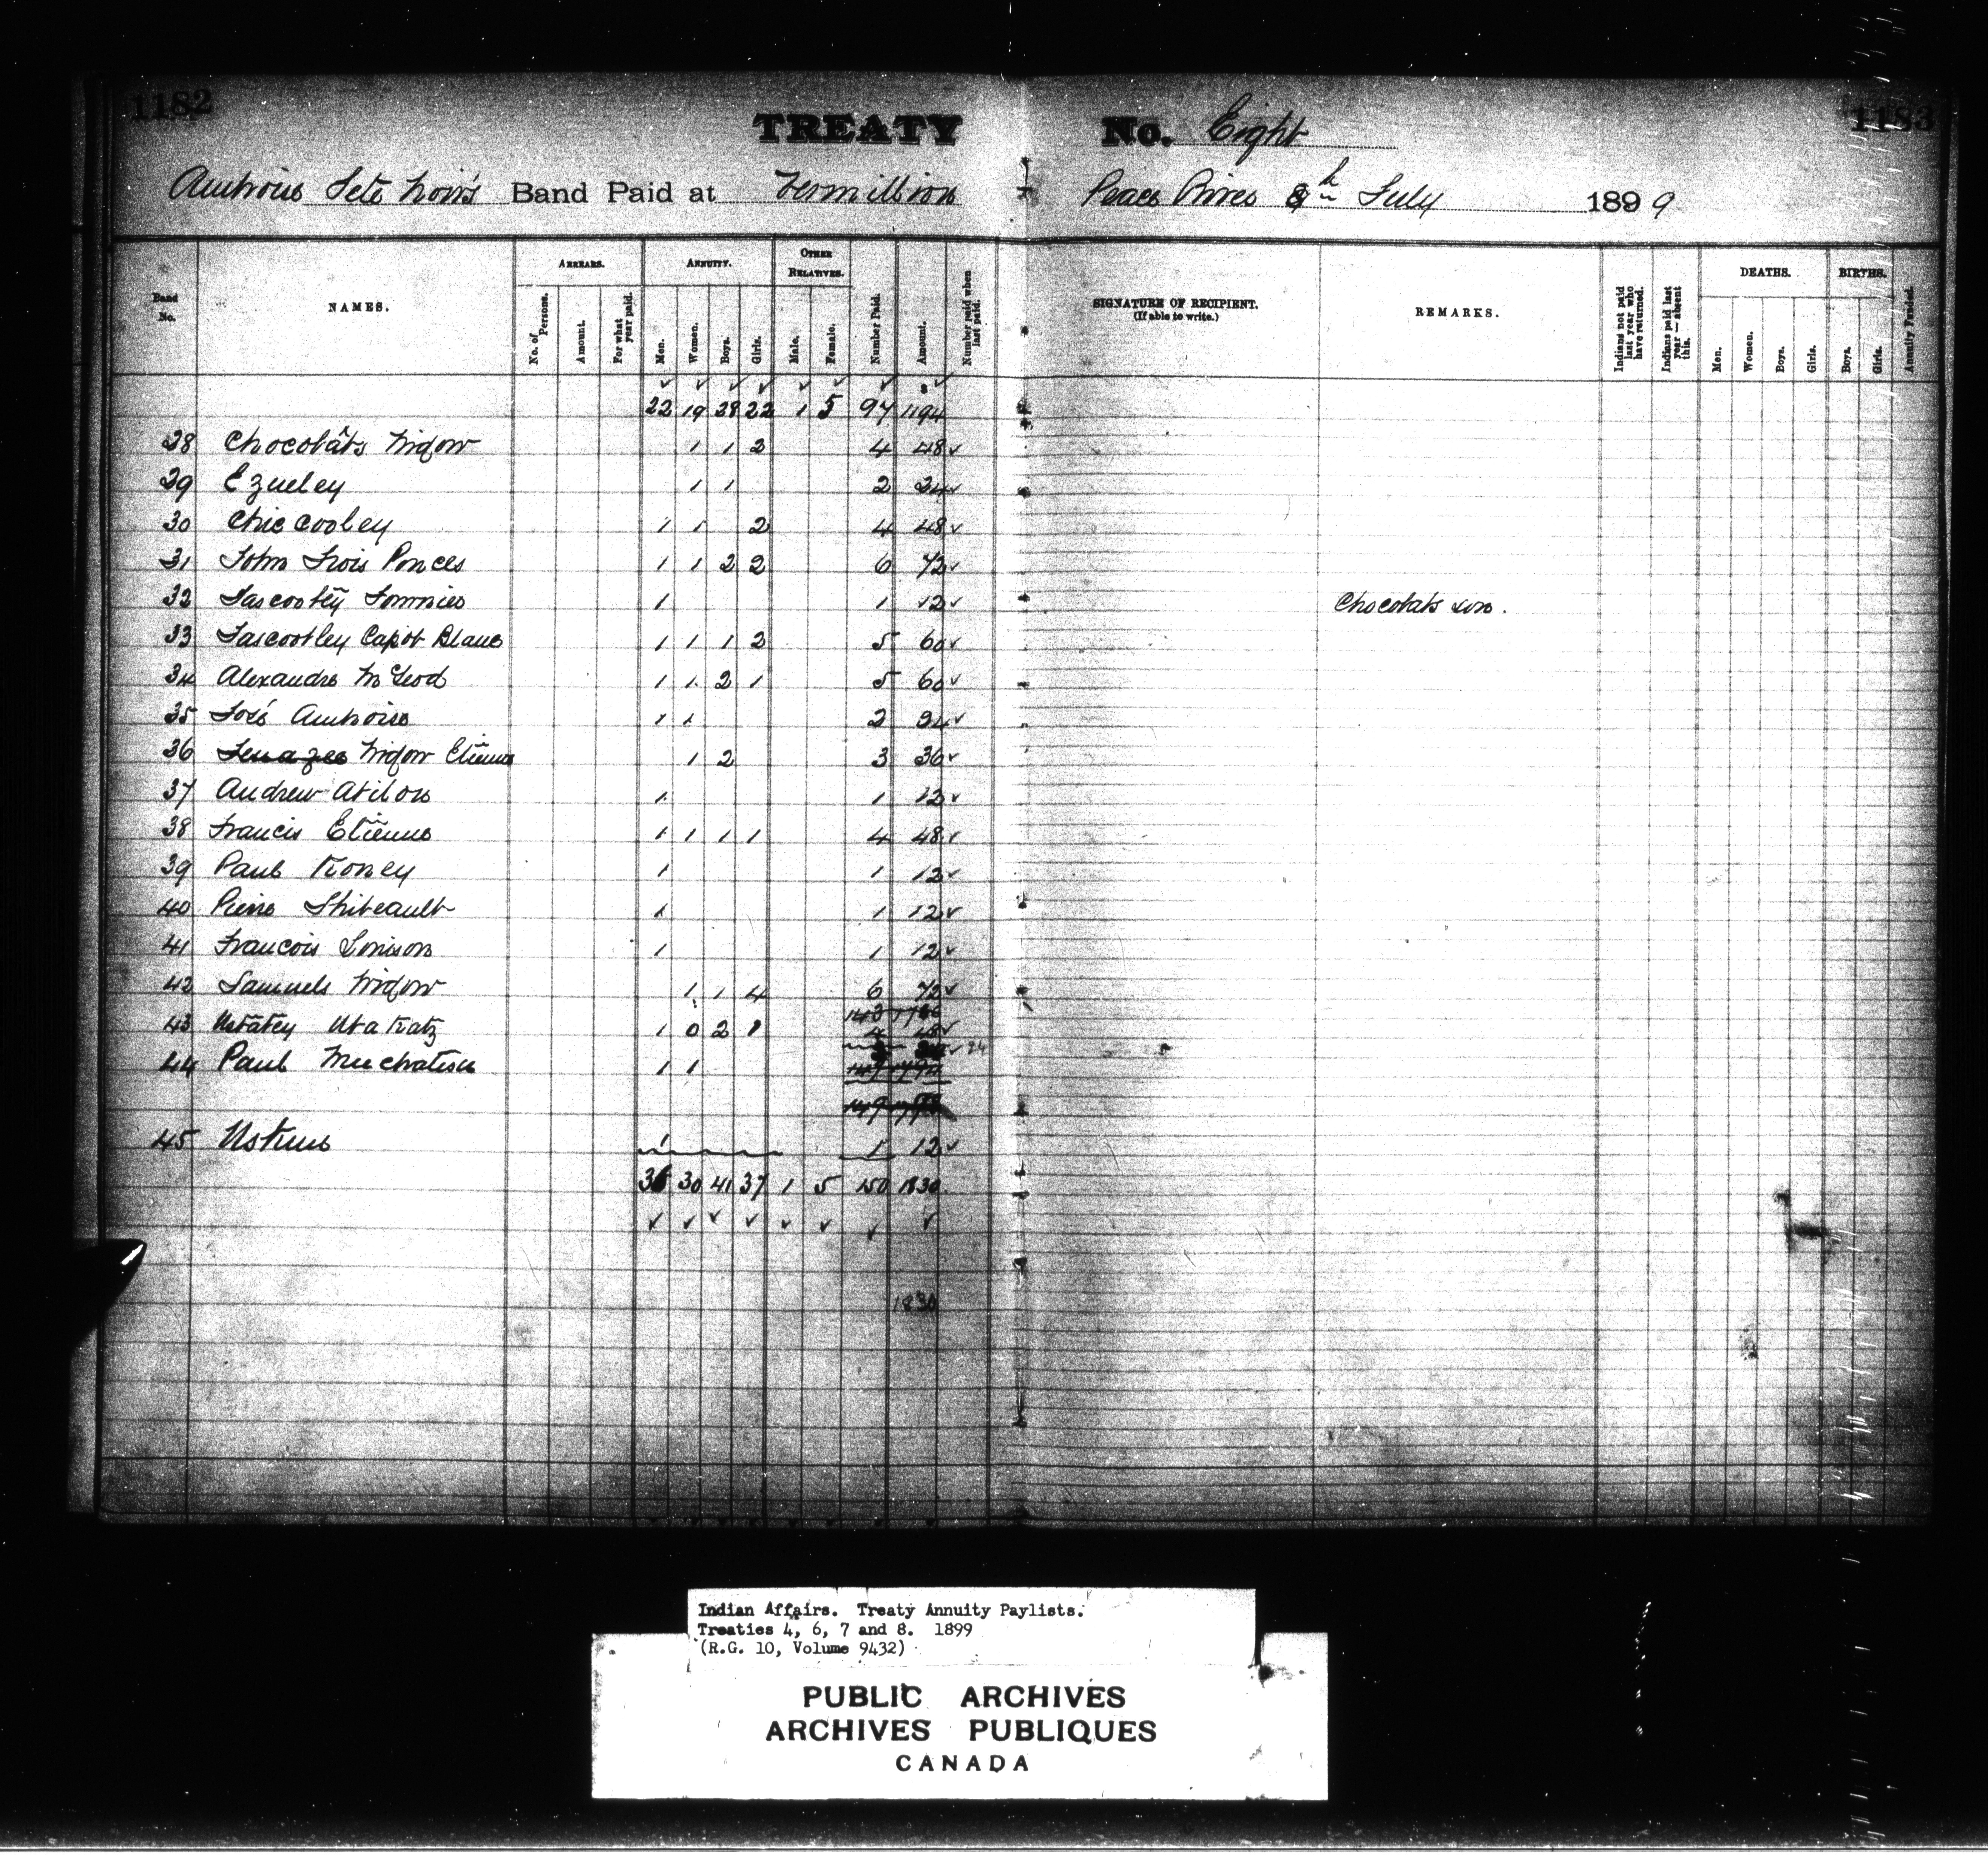 1182 1183
TREATY No. Eight
Ambroise Tete Noir's Band Paid at Vermillion Peace River 8th July 1899
Band No. NAMES. ARREARS. ANNUITY. OTHER RELATIVES. Number Paid. Amount. Number paid when last paid. SIGNATURE OF RECIPIENT. (If able to write.) REMARKS. Indians not paid last year who have returned. Indians paid last year — absent this. DEATHS. BIRTHS. Annuity Funded.
No. of Persons. Amount. For what year paid. Men. Women. Boys. Girls. Male. Female. Men. Women. Boys. Girls. Boys. Girls.
22 19 28 22 1 5 97 1194
28 Chocolâts Widow 1 1 2 4 48
29 Ezueley 1 1 2 24
30 Chiecooley 1 1 2 4 48
31 John Trois Ponces 1 1 2 2 6 72
32 1 1 12 Chocolats son.
33 Tascootley Capot Blanc 1 1 1 2 5 60
34 Alexandre McLeod 1 1 2 1 5 60
35 Ambroise 1 1 2 24
36 Widow Etienne 1 2 3 36
37 Andrew 1 1 12
38 Francis Etienne 1 1 1 1 4 48
39 Paul Koney 1 1 12
40 Pierre Thibeault 1 1 12
41 Francois 1 1 12
42 Samuels Widow 1 1 4 6 72
43 1 0 2 1 4 48
44 Paul 1 1 24
45 1 1 12
36 30 41 37 1 5 150 1830
1830
Indian Affairs. Treaty Annuity Paylists.
Treaties 4, 6, 7 and 8. 1899
(R.G. 10, Volume 9432)
PUBLIC ARCHIVES
ARCHIVES PUBLIQUES
CANADA